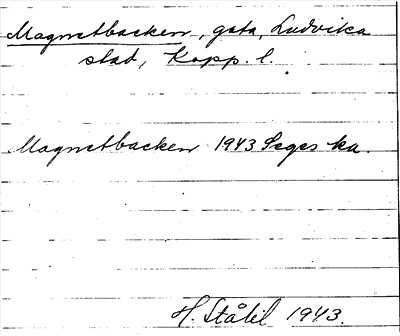 Magnetbacken, gata, Ludvika
stad, Kopp. l.
Magnetbacken 1943 Seges ka.
H. Ståhl 1943.